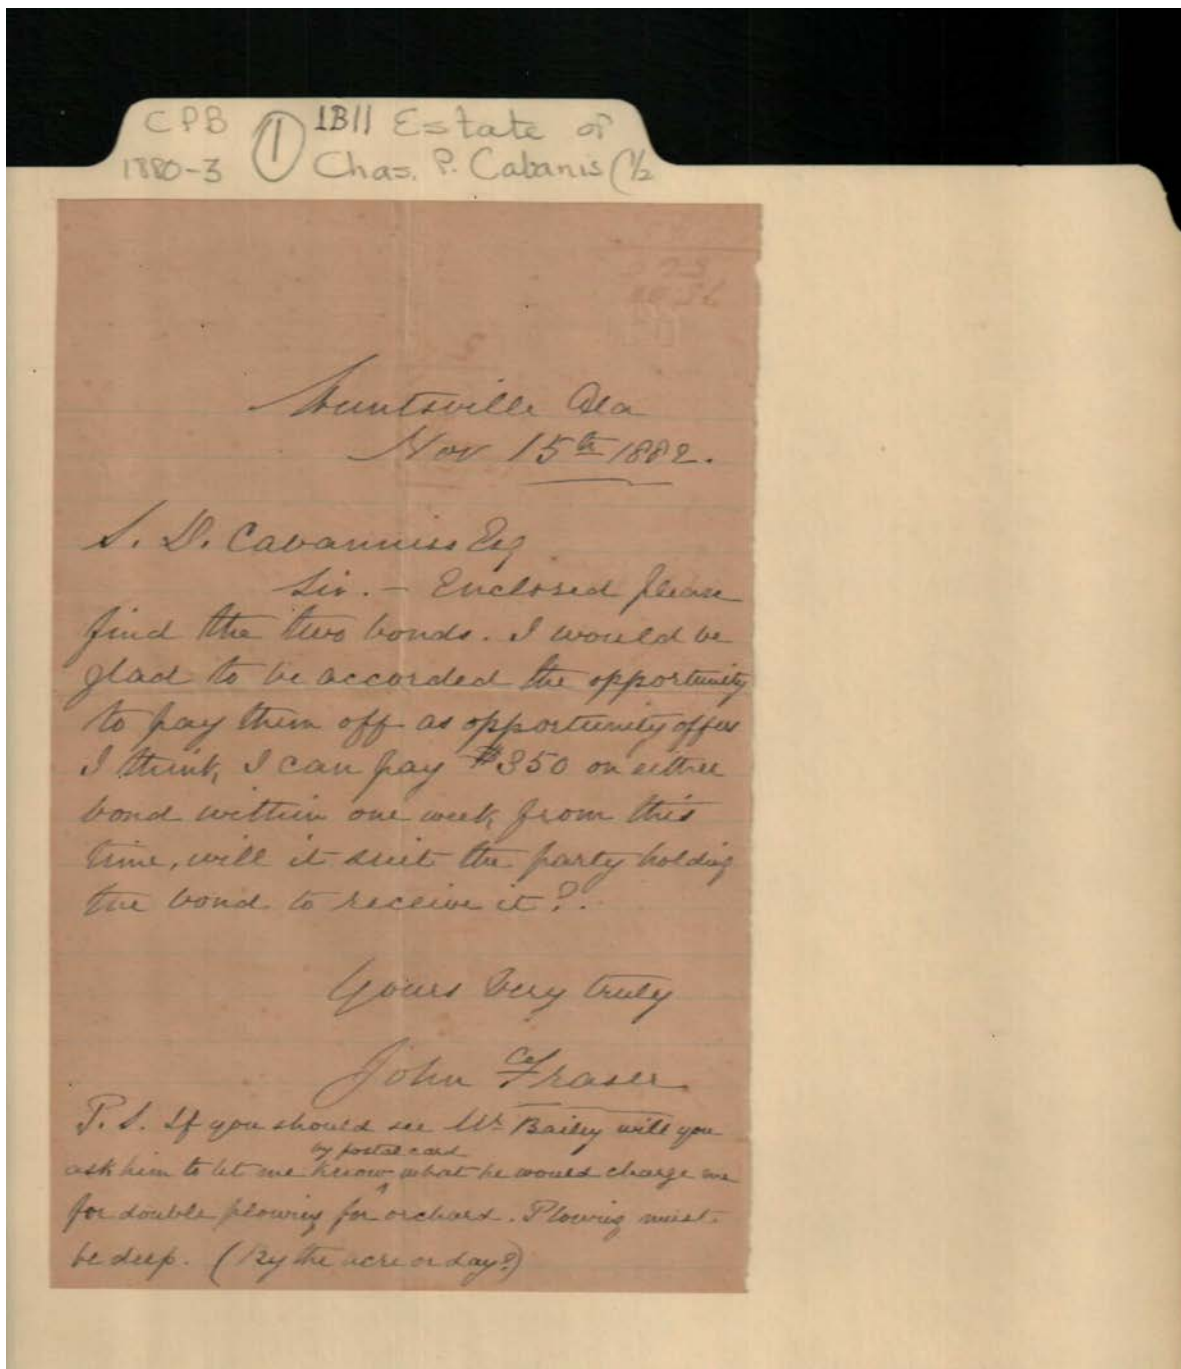 CPB 1 1B11 Estate of
1880-3 Chas. P. Cabanis (1/2
Huntsville Ala
Nov 15th 1882.
S. D. Cabanniss Esq
Sir. — Enclosed please
find the two bonds. I would be
glad to be accorded the opportunity
to pay them off as opportunity offers
I think, I can pay $350 on either
bond within one week, from this
time, will it suit the party holding
the bond to receive it?
Yours Very truly
John Fraser
P.S. If you should see Mr Bailey will you
by postal card
ask him to let me know what he would charge me
for double plowing for orchard. Plowing must
be deep. (By the acre or day?)